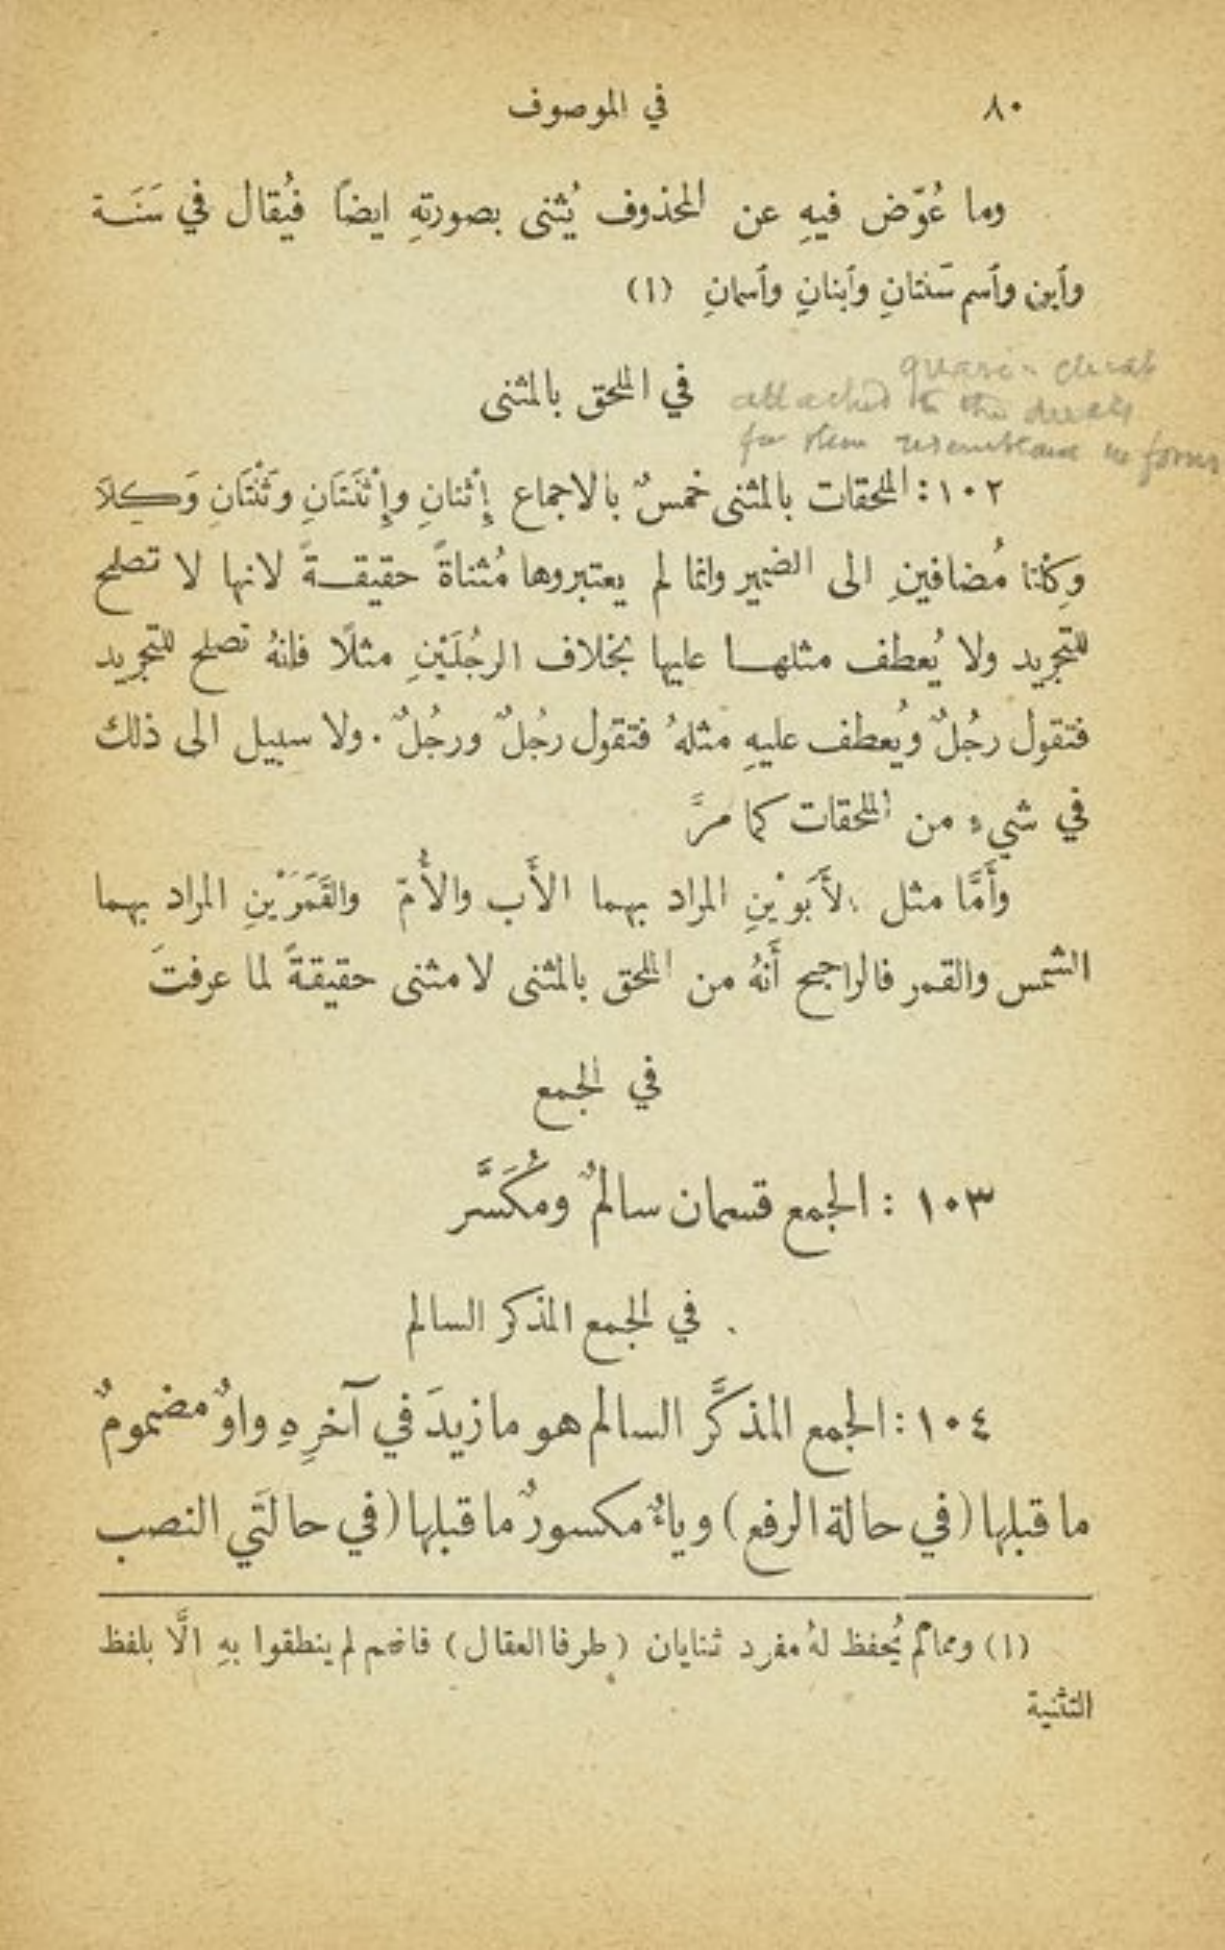 ٨٠ في الموصوف
وما عُوّض فيهِ عن المحذوف يُثنى بصورتهِ ايضاً فيُقال في سَنَـة
وأبن وأسم سَنتانِ وأبنانِ وأسمانِ (١)
quasi - duals
attached to the duals
for their resemblance in form
في الملحق بالمثنى
١٠٢ : الملحقات بالمثنى خمسٌ بالاجماع إِثنانِ وإِثْنَتَانِ وثَنْتَانِ وَكِلاَ
وكِلْتا مُضافينِ الى الضمير وانما لم يعتبروها مُثناةً حقيقـةً لانها لا تصلح
للتجريد ولا يُعطف مثلهـا عليها بخلاف الرجُلَيْنِ مثلًا فانهُ تصلح للتجريد
فتقول رجُلٌ ويُعطف عليهِ مثلهُ فتقول رجُلٌ ورجُلٌ . ولا سبيل الى ذلك
في شيءٍ من الملحقات كما مرَّ
وأَمَّا مثل الأَبَوَيْنِ المراد بهما الأَب والأُمّ والقَمَرَيْنِ المراد بهما
الشمس والقمر فالراجح أَنهُ من الملحق بالمثنى لا مثنى حقيقةً لما عرفتَ
في الجمع
١٠٣ : الجمع قسمان سالمٌ ومُكَسَّر
في الجمع المذكر السالم
١٠٤ : الجمع المذكَّر السالم هو ما زيدَ في آخرِهِ واوٌ مضمومٌ
ما قبلها (في حالة الرفع) وياءٌ مكسورٌ ما قبلها (في حالتَي النصب
(١) ومما لم يُحفظ لهُ مفرد ثنايان (طرفا العقال) فانهم لم ينطقوا بهِ الَّا بلفظ
التثنية